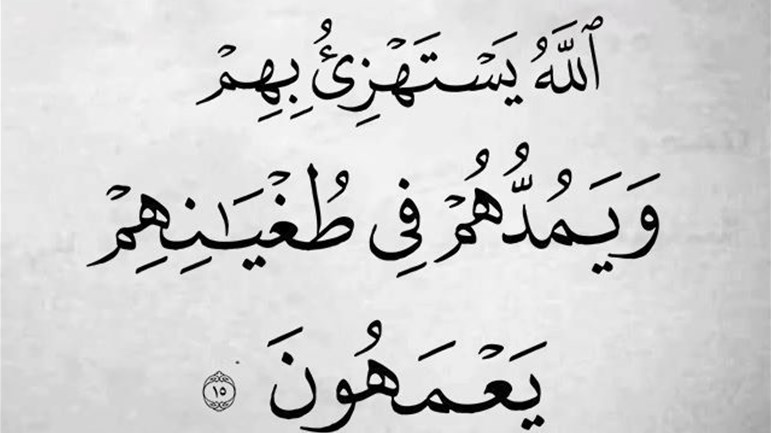 ٱللَّهُ يَسْتَهْزِئُ بِهِمْ
وَيَمُدُّهُمْ فِي طُغْيَـٰنِهِمْ
يَعْمَهُونَ ١٥